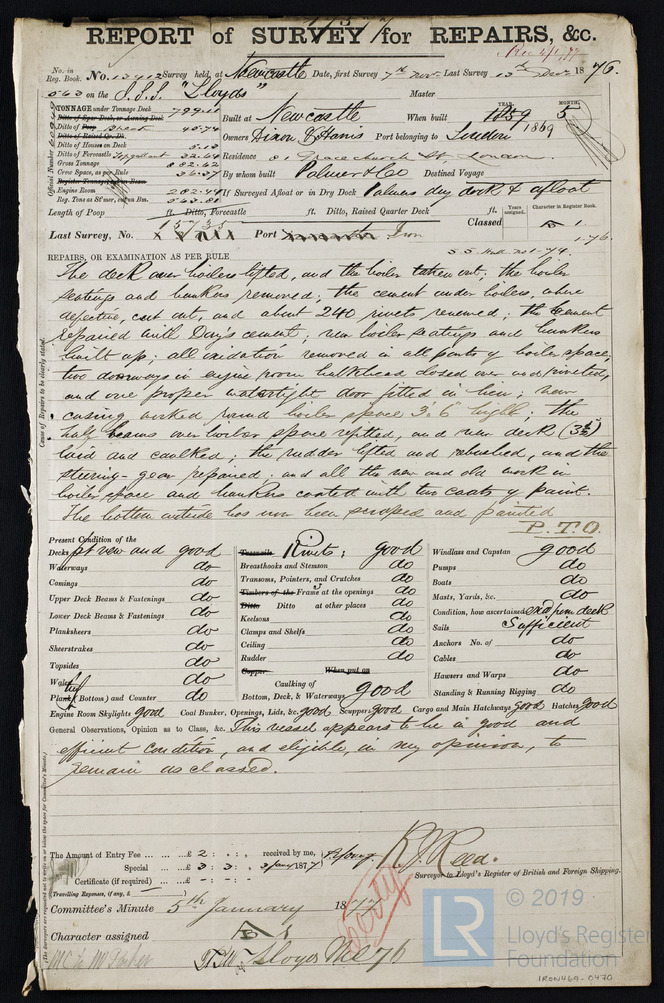 REPORT of SURVEY for REPAIRS, &c.
No. in Reg. Book. No. 13912 Survey held, at Newcastle Date, first Survey 7th Novr Last Survey 13th Decr 1876.
563 on the S.S.S. "Lloyds" Master
TONNAGE under Tonnage Deck
Built at Newcastle When built YEAR. 1859 MONTH. 5
1869
Ditto of Spar Deck, or Awning Deck
Ditto of Poop Break 45.74
Ditto of Raised Qr. Dk.
Ditto of Houses on Deck 5.13
Ditto of Forecastle Topgallant 32.64
Gross Tonnage 882.62
Crew Space, as per Rule 36.37
Register Tonnage, as on Beam
Engine Room 282.44
Reg. Tons as Stmr. cut on Bm. 563.81
Official Number
Owners Dixon & Harris Port belonging to London
Residence 81 Gracechurch St. London
By whom built Palmer & Co Destined Voyage
If Surveyed Afloat or in Dry Dock Palmers dry dock & afloat
Length of Poop ft. Ditto, Forecastle ft. Ditto, Raised Quarter Deck ft.
Years assigned. Character in Register Book.
Classed A 1
1.76.
Last Survey, No. 15735 Port Iron
REPAIRS, OR EXAMINATION AS PER RULE
The deck over boilers lifted, and the boiler taken out; the boiler
seatings and bunkers removed; the cement under boilers, where
defective, cut out, and about 240 rivets renewed; the cement
repaired with Day's cement; new boiler seatings and bunkers
built up; all oxidation removed in all parts of boiler space,
two doorways in engine room bulkhead closed over and riveted,
and one proper watertight door fitted in lieu; new
casing worked round boiler space 3.6" high; the
half beams over boiler space refitted, and new deck (3½")
laid and caulked; the rudder lifted and rebushed, and the
steering-gear repaired; and all the new and old work in
boiler space and bunkers coated with two coats of paint.
The bottom outside has now been scraped and painted
P.T.O.
Cause of Repairs to be clearly stated.
Present Condition of the
Decks pt new and good
Waterways do
Comings do
Upper Deck Beams & Fastenings do
Lower Deck Beams & Fastenings do
Planksheers do
Sheerstrakes do
Topsides do
Wales do
Plank (Bottom) and Counter do
Treenails Rivets; good
Breasthooks and Stemson do
Transoms, Pointers, and Crutches do
Timbers of the Frames at the openings do
Ditto Ditto at other places do
Keelsons do
Clamps and Shelfs do
Ceiling do
Rudder do
Copper When put on
Caulking of Bottom, Deck, & Waterways good
Windlass and Capstan good
Pumps do
Boats do
Masts, Yards, &c. do
Condition, how ascertained exd from deck
Sails Sufficient
Anchors No. of do
Cables do
Hawsers and Warps do
Standing & Running Rigging do
Engine Room Skylights good Coal Bunker, Openings, Lids, &c. good Scuppers good Cargo and Main Hatchways good Hatches good
General Observations, Opinion as to Class, &c. This vessel appears to be in good and
efficient condition, and eligible, in my opinion, to
remain as classed.
The Amount of Entry Fee £ 2 : . : . received by me,
Special £ 3 : 3 : . 3/Jany 1877
Certificate (if required) £ - : - : -
(Travelling Expenses, if any, £ )
R. J. Reed.
Surveyor to Lloyd's Register of British and Foreign Shipping.
Committee's Minute 5th January 1877
Character assigned A 1
© 2019
LR Lloyd's Register Foundation
IRON469-0470